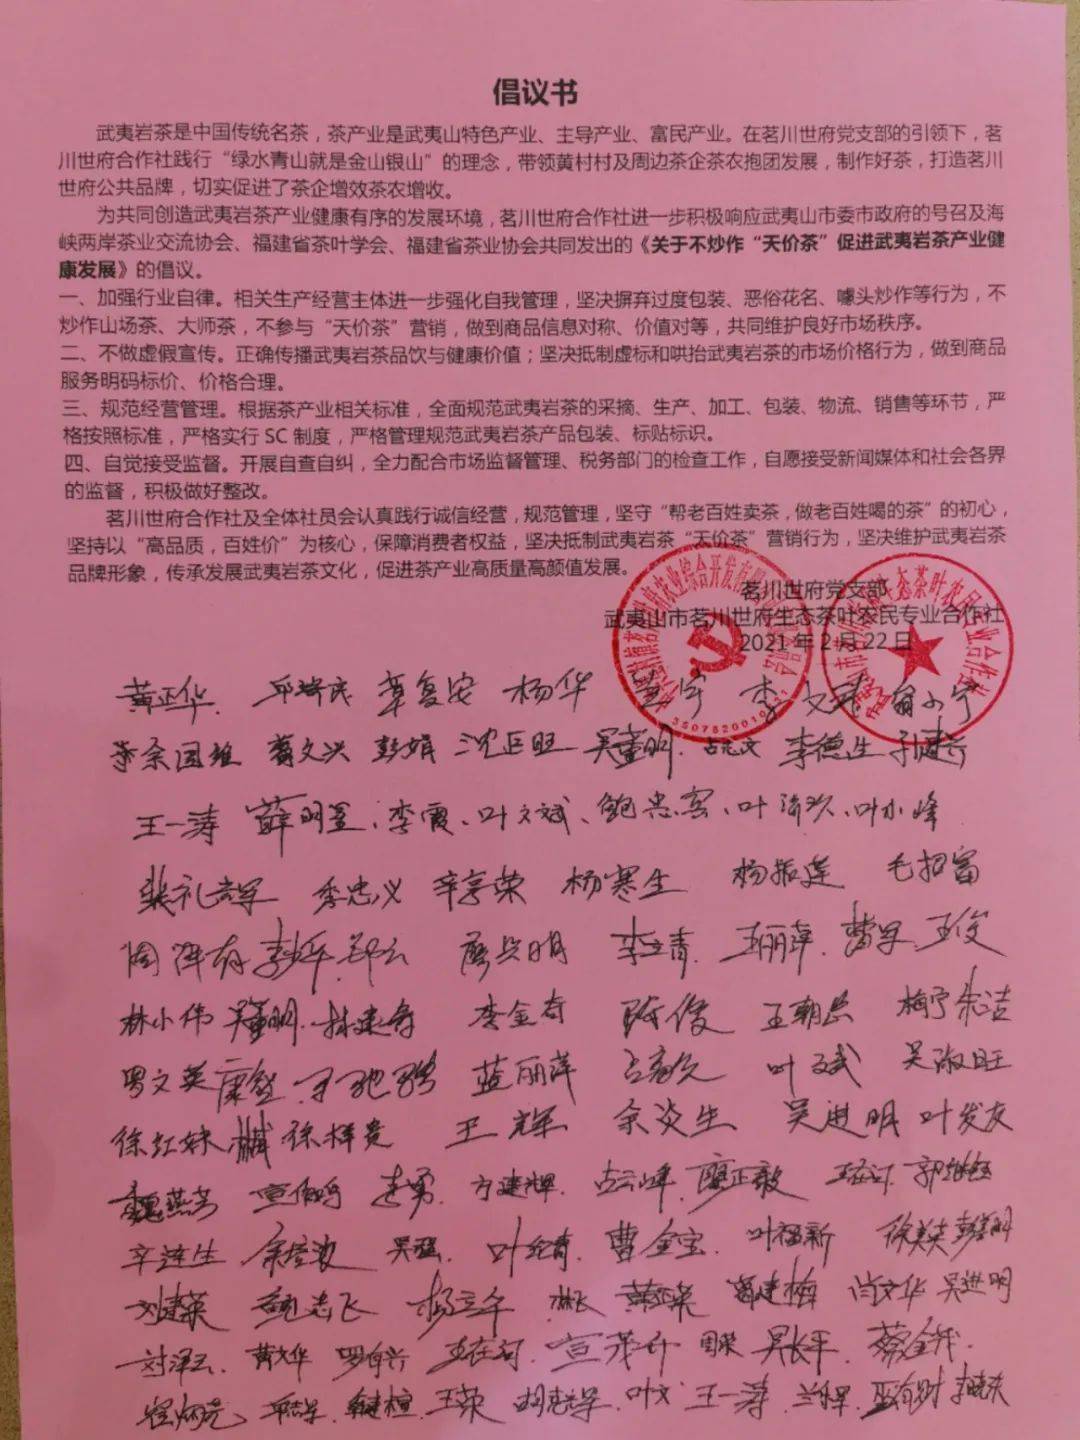 倡议书
武夷岩茶是中国传统名茶，茶产业是武夷山特色产业、主导产业、富民产业。在茗川世府党支部的引领下，茗
川世府合作社践行“绿水青山就是金山银山”的理念，带领黄村村及周边茶企茶农抱团发展，制作好茶，打造茗川
世府公共品牌，切实促进了茶企增效茶农增收。
为共同创造武夷岩茶产业健康有序的发展环境，茗川世府合作社进一步积极响应武夷山市委市政府的号召及海
峡两岸茶业交流协会、福建省茶叶学会、福建省茶业协会共同发出的《关于不炒作“天价茶”促进武夷岩茶产业健
康发展》的倡议。
一、加强行业自律。相关生产经营主体进一步强化自我管理，坚决摒弃过度包装、恶俗花名、噱头炒作等行为，不
炒作山场茶、大师茶，不参与“天价茶”营销，做到商品信息对称、价值对等，共同维护良好市场秩序。
二、不做虚假宣传。正确传播武夷岩茶品饮与健康价值；坚决抵制虚标和哄抬武夷岩茶的市场价格行为，做到商品
服务明码标价、价格合理。
三、规范经营管理。根据茶产业相关标准，全面规范武夷岩茶的采摘、生产、加工、包装、物流、销售等环节，严
格按照标准，严格实行 SC 制度，严格管理规范武夷岩茶产品包装、标贴标识。
四、自觉接受监督。开展自查自纠，全力配合市场监督管理、税务部门的检查工作，自愿接受新闻媒体和社会各界
的监督，积极做好整改。
茗川世府合作社及全体社员会认真践行诚信经营，规范管理，坚守“帮老百姓卖茶，做老百姓喝的茶”的初心，
坚持以“高品质，百姓价”为核心，保障消费者权益，坚决抵制武夷岩茶“天价茶”营销行为，坚决维护武夷岩茶
品牌形象，传承发展武夷岩茶文化，促进茶产业高质量高颜值发展。
茗川世府党支部
武夷山市茗川世府生态茶叶农民专业合作社
2021 年 2 月 22 日
黄正华 邱瑞民 章复安 杨华
余国雄 葛文兴 彭娟 沈正旺 吴董明 占花文 李德生
王一涛 薛明昱、李霞、叶文斌、鲍忠宾、叶小峰
季忠义 辛享荣 杨寒生 杨振莲 毛招富
周泽存 廖兴明 李立青 王丽萍 曹军 王俊
林小伟 吴董明 李金奇 陈俊 王朝
罗文英 康盛 蓝丽萍 叶文斌 吴淑旺
徐红妹 徐祥贵 王辉 余炎生 吴进明 叶发友
魏燕芳 李勇 方建辉 占云峰 廖正毅
辛连生 吴强 曹金宝 叶福新 徐美英
刘建荣 鲍志飞 杨立午 葛建梅 肖文华 吴进明
黄文华 罗有兴 王在词 宣茂升 周荣 吴长平 蔡金我
王荣 胡志军 叶文 王一涛 巫有财